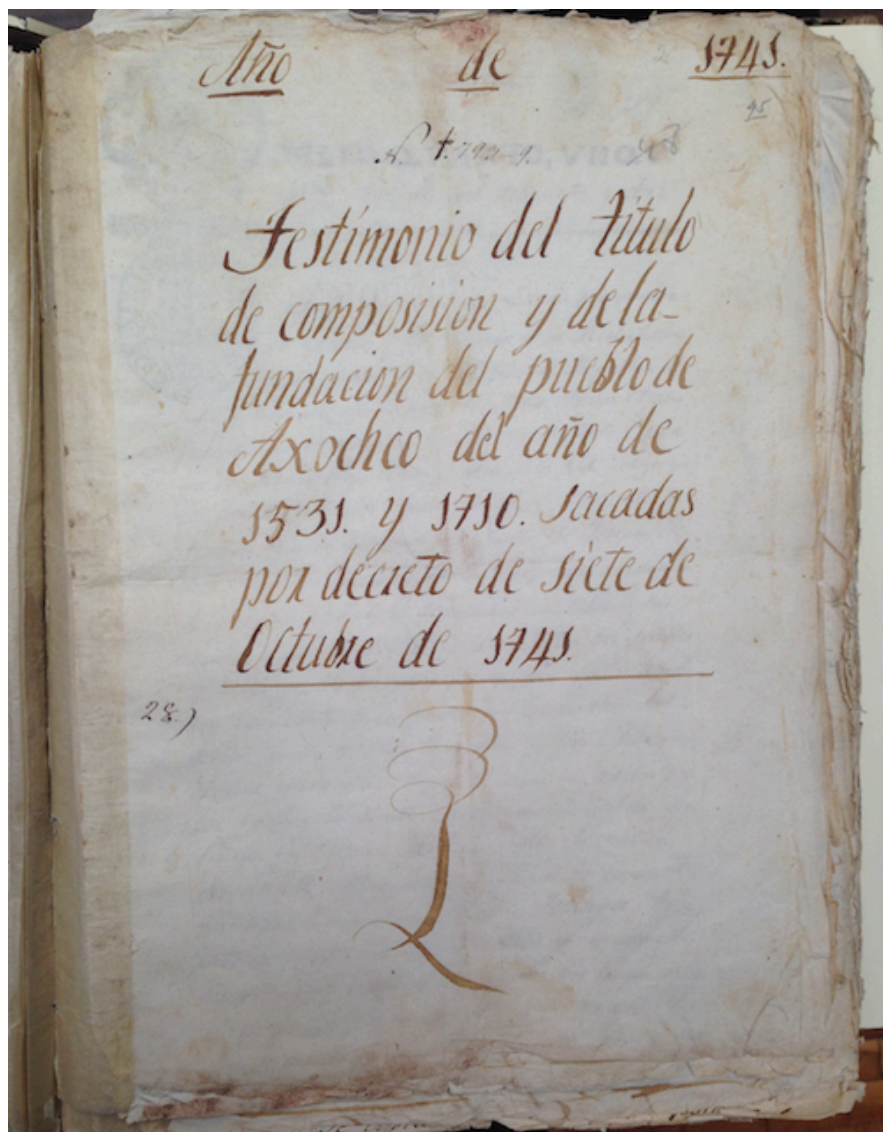 Año de 1741.
2
95
Testimonio del titulo
de composision y de la
fundacion del pueblo de
Axochco del año de
1531. y 1710. sacadas
por decreto de siete de
Octubre de 1741.
28.)